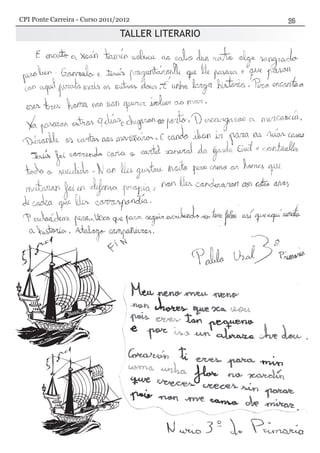 CPI Ponte Carreira - Curso 2011/2012
26
TALLER LITERARIO
E encanto a Xoán tamén volveu no cabo dun ratiño algo sangrado
pero ben. Gonzalo e Uxía preguntáronlle que lle pasara e que pasou
con aquel pirata e cos outros dous. É unha longa historia. Pero encanto a
eses tres homes non van querer volver ao mar.
Xa pasaron outros 9 días e chegaron ao porto. Descargaron a mercancía.
Déronlle os cartos aos mariñeiros. E cando iban ir para as súas casas
Uxía foi correndo cara o cartel xeneral da Garda Civil e contoulle
todo o sucedido. Non lles gustou moito pero como os homes que
mataran foi en defensa propia, non lles condenaron aos catro anos
de cadea que lles correspondía.
a historia. Ata logo compañeiros.
FIN
Pablo Vidal 3º Primaria
Meu neno meu neno
non chores que xa vou
pois eres tan pequeno
e por iso un abrazo che dou.
Corazón ti eres para min
coma unha flor no xardín
que creces creces sin parar
pois non me canso de mirar.
Nuria 3º de Primaria